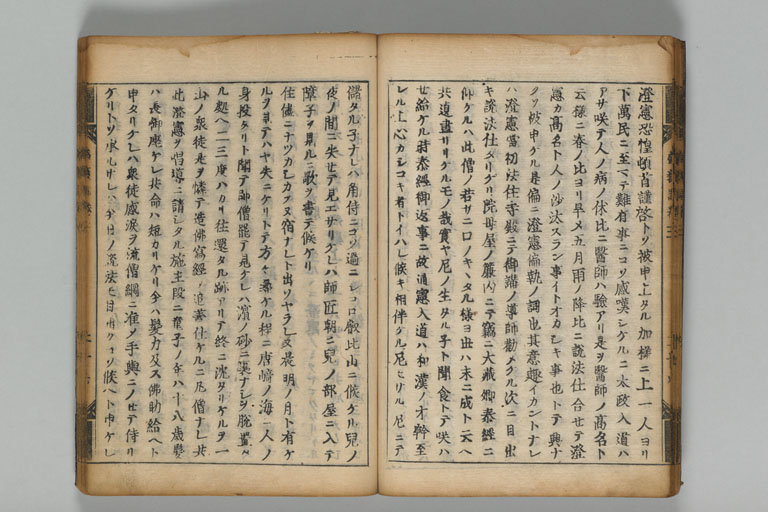 澄憲恐惶頓首謹啓トソ被申上タル加樣ニ上一人ヨリ
下萬民ニ至マテ難有事ニコソ感嘆シケルニ太政入道ハ
アサ咲テ人ノ病ノ伏比ニ醫師ハ驗アリ是ヲ醫師ノ高名ト
云樣ニ春ノ比ヨリ旱メ五月雨ノ降比ニ説法仕合セテ澄
憲カ高名ト人ノ沙汰スラン事イトオカシキ事也トテ興ナ
クソ被申ケル是偏ニ澄憲偏執ノ詞也其意趣イカントナレ
ハ澄憲當初法住寺殿ニテ御講ノ導師勤メケル次ニ目出
キ説法仕タリケリ院母屋ノ簾内ニテ竊ニ大藏卿泰經ニ
仰ケルハ此僧ノ若サニ口ノキヽタル樣ヨ世ハ末ニ成トモ
共道盡サリケルモノ哉實ヤ尼ノ生タル子ト聞食トテ咲ハ
せ給ケル時泰經御返事ニ故通憲入道ハ和漢ノ才幹至
レル上心カシコキ者トイハレ候キ相伴ケル尼ヒサル尼ニテ
儲タル子ナレハ角侍ニコソ過ニシコロ叡比山ニ候ケル兒ノ
夜ノ間ニ失せテ見エサリケレハ師匠朝ニ兒ノ部屋ニ入テ
障子ヲ見ルニ歌ヲ書テ候ケリ
住儘ニナツカシカラヌ宿ナレト出ソヤラレヌ晨明ノ月ト有ケ
ルヲ見テハヤ失ニケリトテ方々尋ケル程ニ唐﨑ノ海ニ人ノ
身投タリト聞テ師僧罷テ見ケレハ濱ノ砂ニ裳ナシヲ脱置タ
ル処ヘ二三度ハカリ往還タル跡アリテ終ニ沈タリケルヲ一
山ノ衆徒是ヲ憐テ造佛寫經ノ追善仕ケルニ乃僧ナレ共
此澄憲ヲ唱導ニ請シタル施主段ニ童子ノ年ハ十八歳髮
ハ長御座ケレ共命ハ短カリケリ今ハ擧力及ス佛助給ヘト
申タリケレハ衆徒感涙ヲ流僧綱ニ准メ手輿ニノせテ侍リ